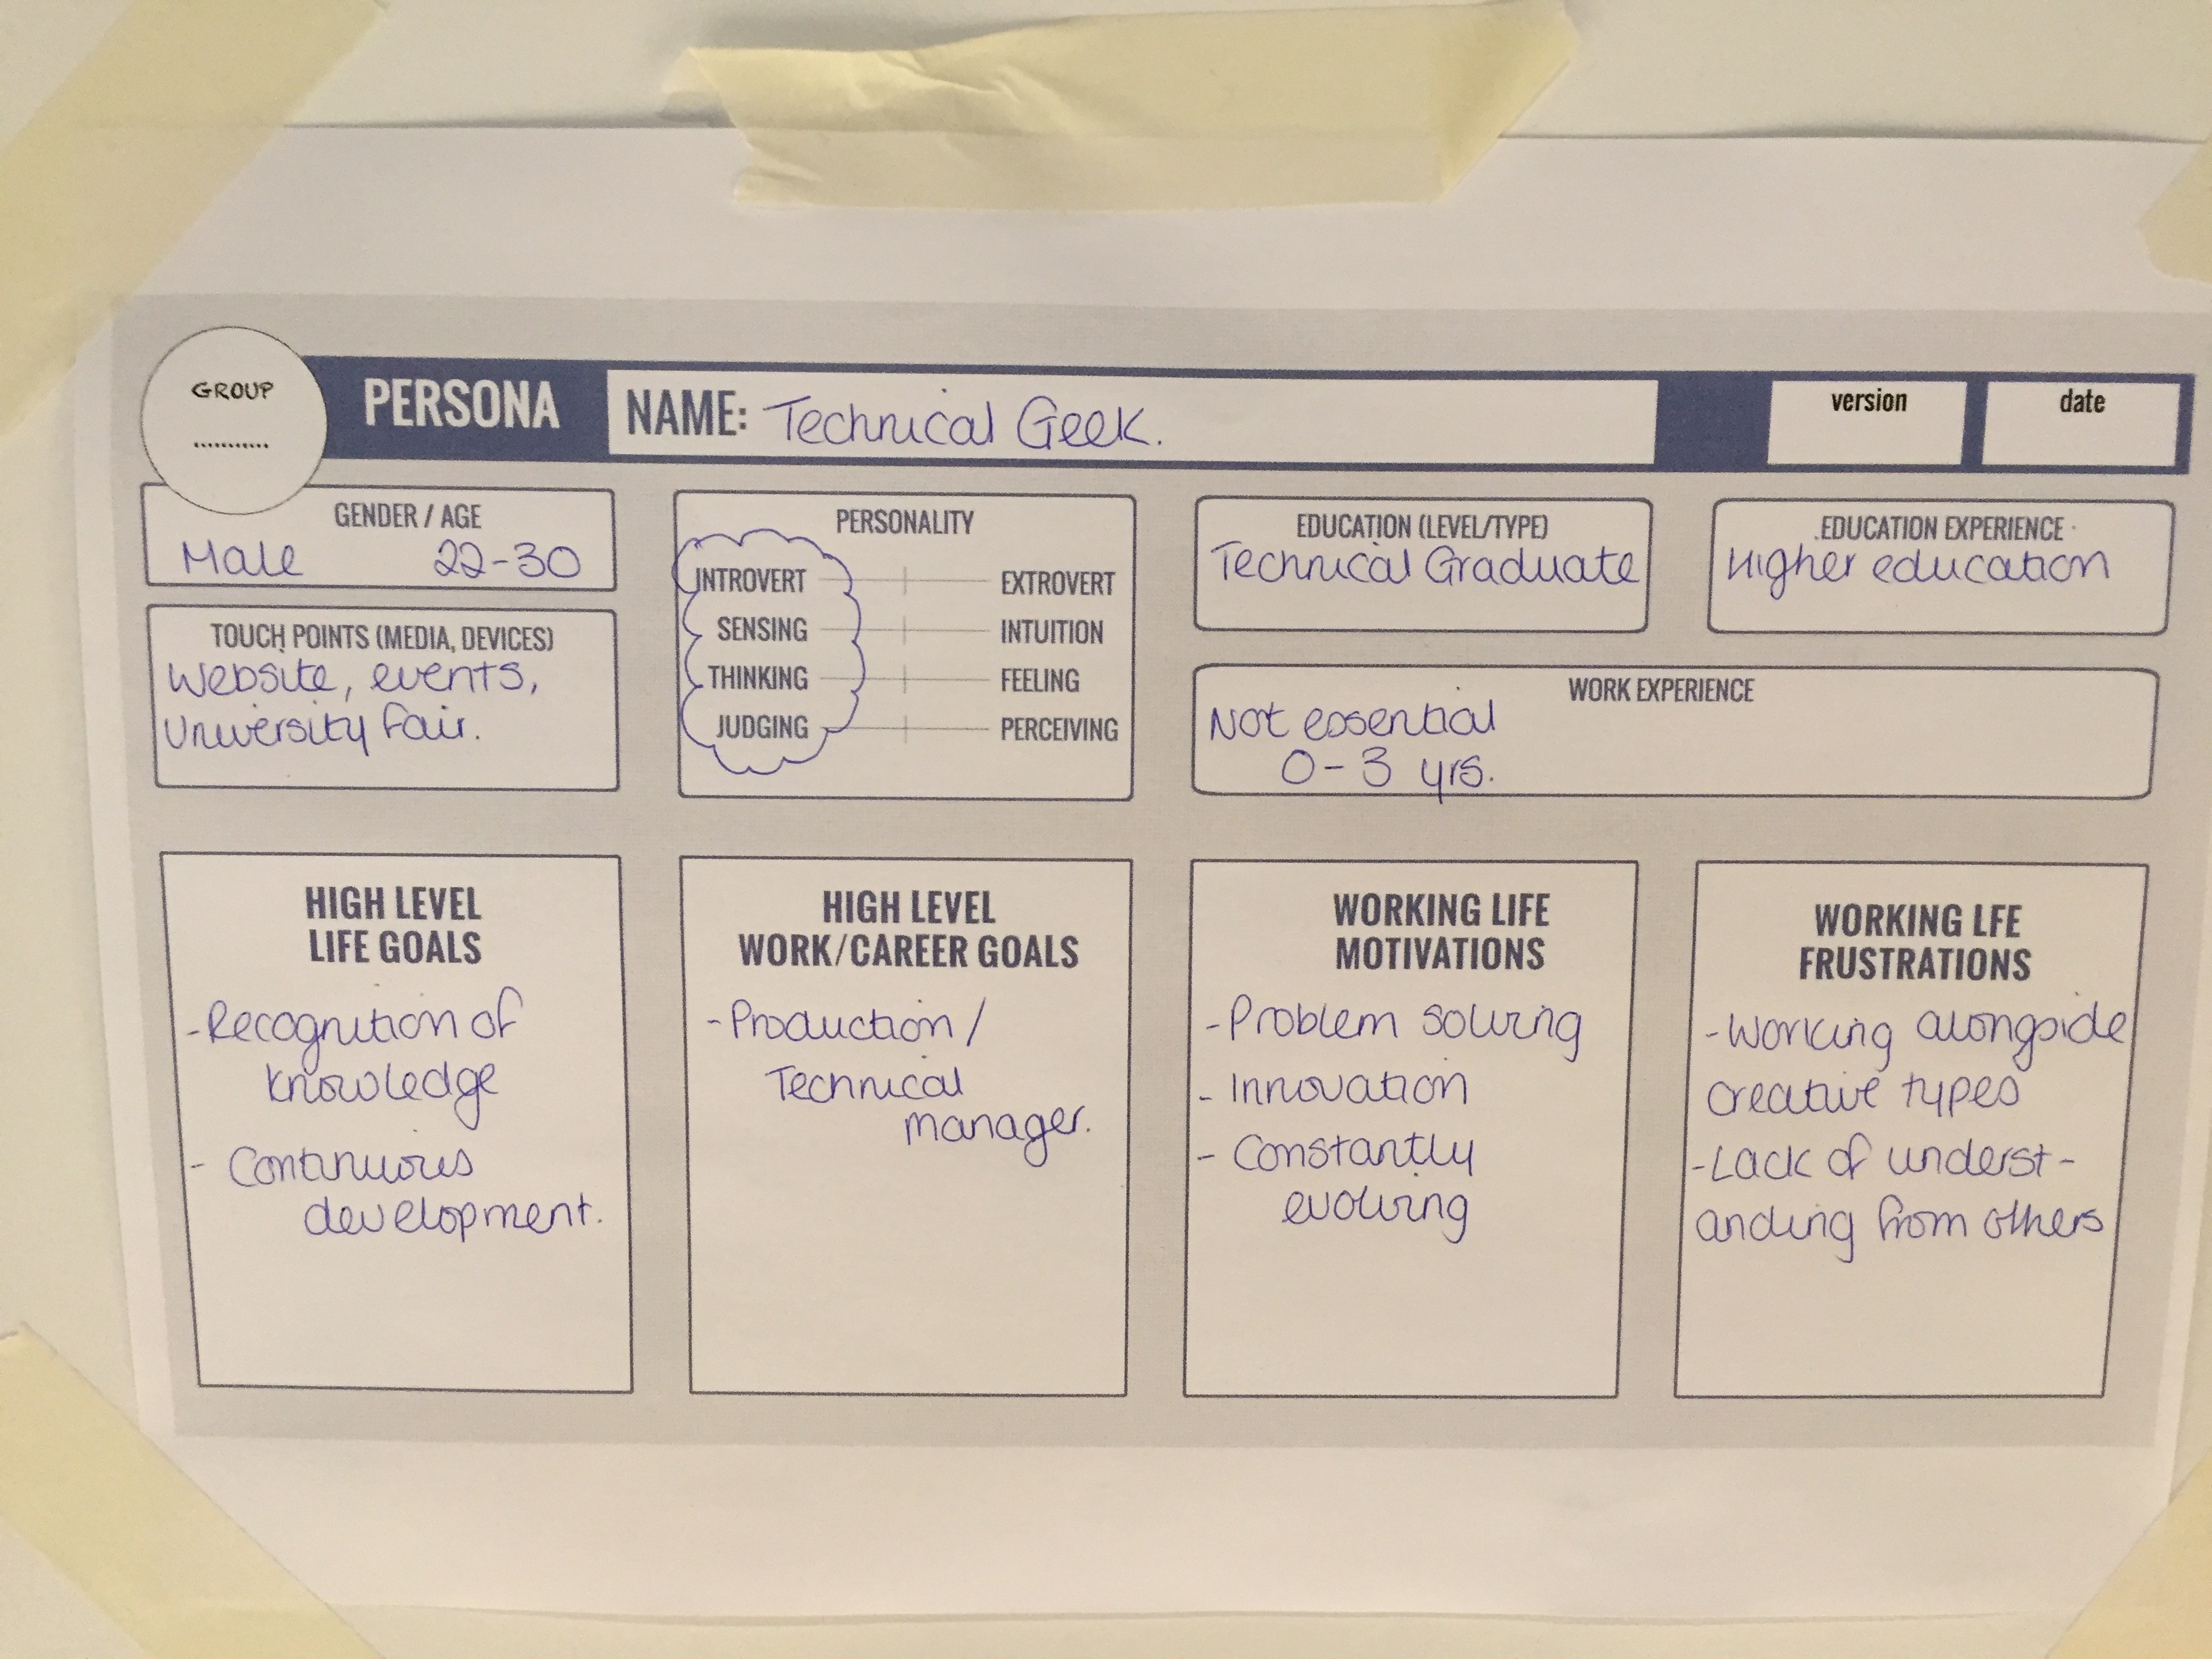 GROUP
...........
PERSONA
NAME: Technical Geek.
version
date
GENDER / AGE
Male 22-30
PERSONALITY
INTROVERT EXTROVERT
SENSING INTUITION
THINKING FEELING
JUDGING PERCEIVING
EDUCATION (LEVEL/TYPE)
Technical Graduate
EDUCATION EXPERIENCE
Higher education
TOUCH POINTS (MEDIA, DEVICES)
Website, events,
University fair.
WORK EXPERIENCE
Not essential
0-3 yrs.
HIGH LEVEL
LIFE GOALS
-Recognition of
knowledge
- Continuous
development.
HIGH LEVEL
WORK/CAREER GOALS
-Production/
Technical
manager.
WORKING LIFE
MOTIVATIONS
-Problem solving
- Innovation
- Constantly
evolving
WORKING LFE
FRUSTRATIONS
-Working alongside
creative types
-Lack of underst-
anding from others